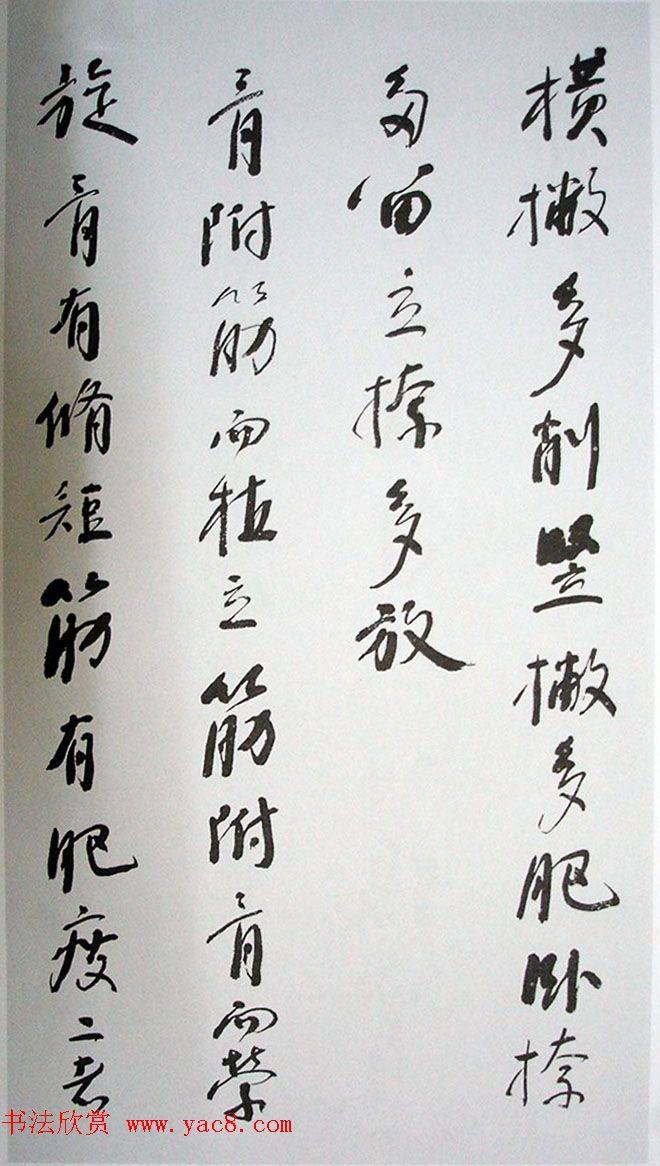 橫撇多削竪撇多肥臥捺
多留立捺多放
骨附筋而植立筋附骨而縈
旋骨有脩短筋有肥瘦二者
书法欣赏 www.yac8.com